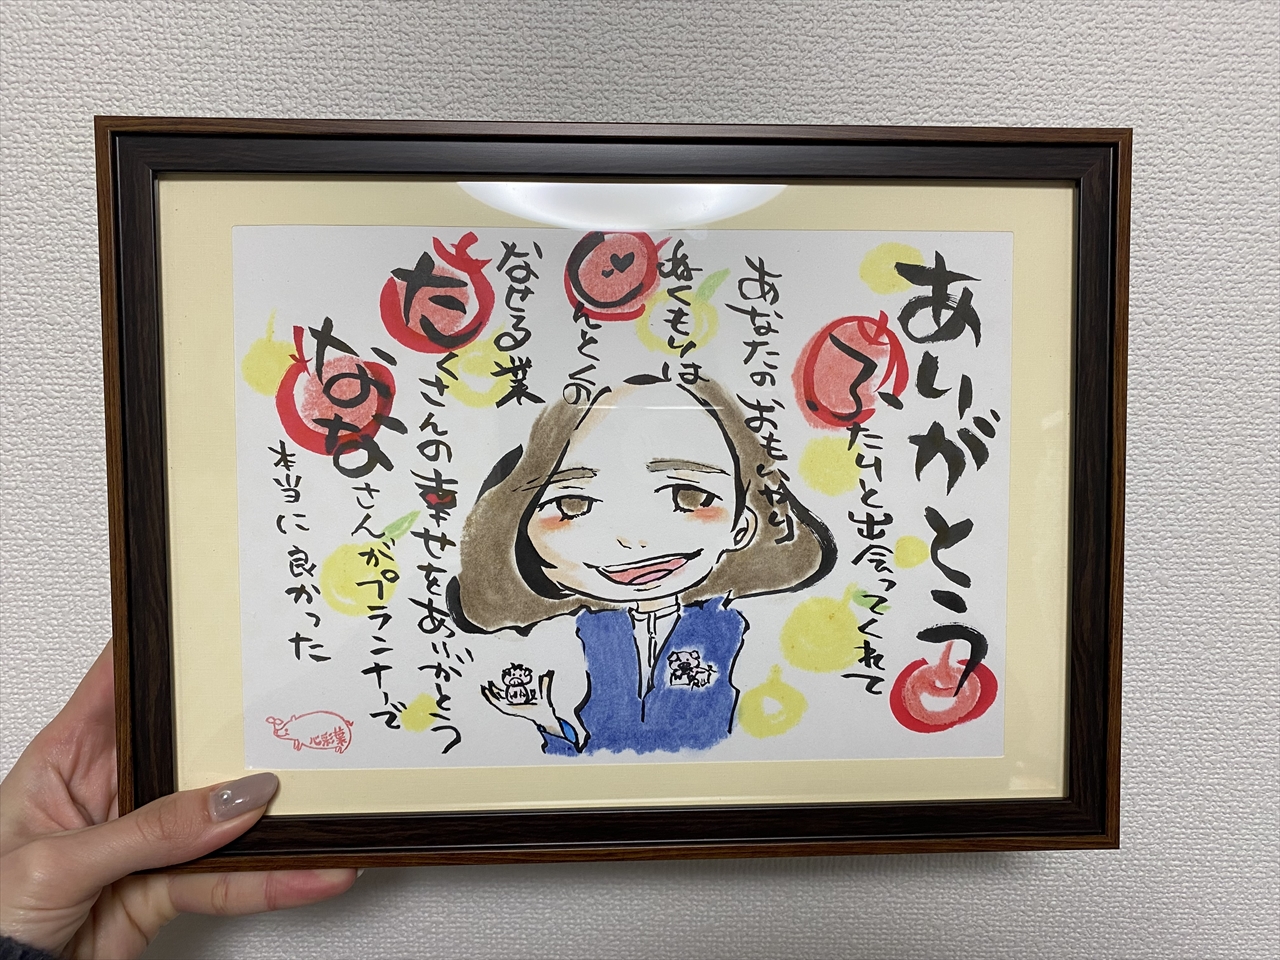 ありがとう
ふたりと出会ってくれて
あなたのおもいやり
ぬくもりは
じんとくの
なせる業
たくさんの幸せをありがとう
ななさんがプランナーで
本当に良かった
心彩葉